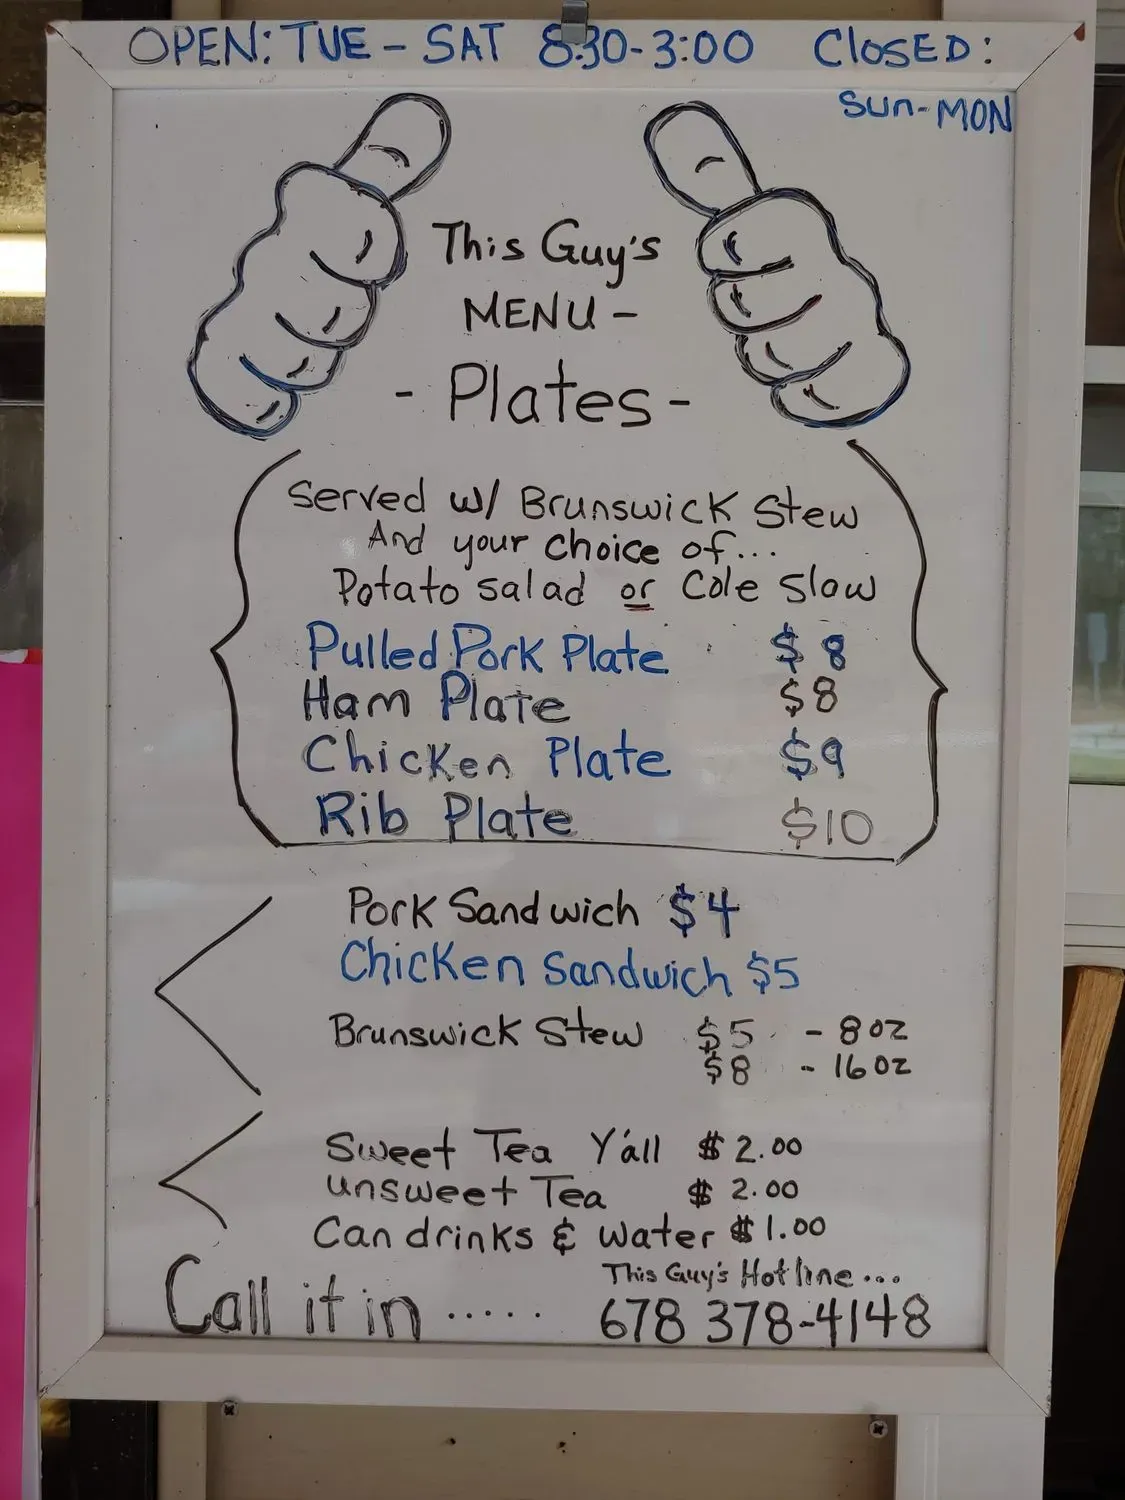 OPEN: TUE - SAT 8:30-3:00 CLOSED:
Sun-MON
This Guy's
MENU -
- Plates -
Served w/ Brunswick Stew
And your choice of...
Potato salad or Cole Slaw
Pulled Pork Plate $8
Ham Plate $8
Chicken Plate $9
Rib Plate $10
Pork Sandwich $4
Chicken Sandwich $5
Brunswick Stew $5 - 8oz
$8 - 16oz
Sweet Tea Y'all $2.00
unsweet Tea $2.00
Can drinks & Water $1.00
This Guy's Hotline...
Call it in ..... 678 378-4148